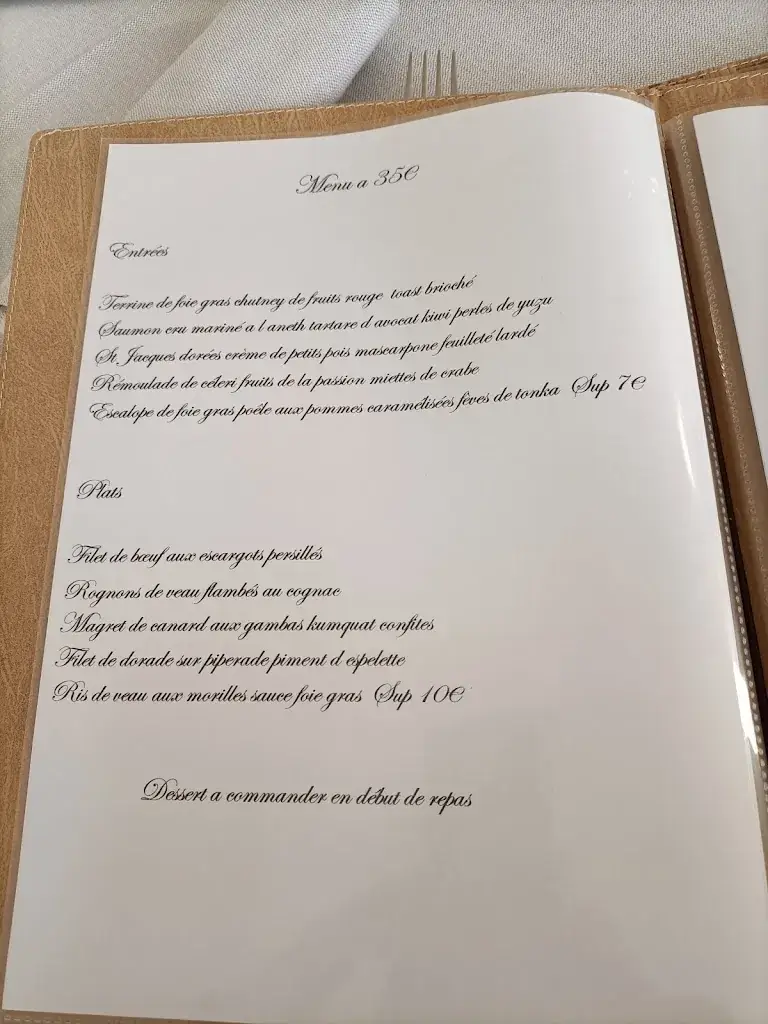 Menu a 35€
Entrées
Terrine de foie gras chutney de fruits rouge toast brioché
Saumon cru mariné a l aneth tartare d avocat kiwi perles de yuzu
St Jacques dorées crème de petits pois mascarpone feuilleté lardé
Rémoulade de céleri fruits de la passion miettes de crabe
Escalope de foie gras poêle aux pommes caramélisées fêves de tonka Sup 7€
Plats
Filet de bœuf aux escargots persillés
Rognons de veau flambés au cognac
Magret de canard aux gambas kumquat confites
Filet de dorade sur piperade piment d espelette
Ris de veau aux morilles sauce foie gras Sup 10€
Dessert a commander en début de repas